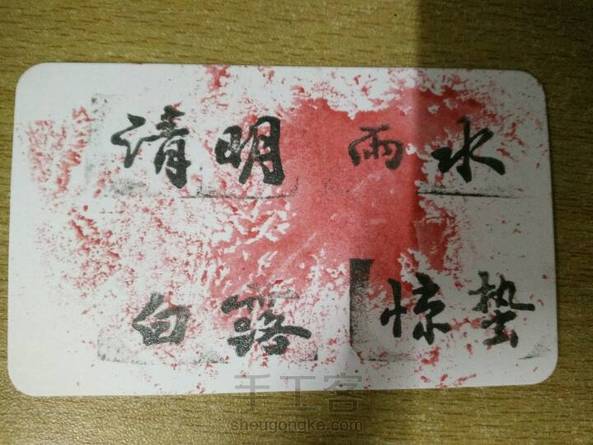 清明 雨水
白露 惊蛰
手工客
shougongke.com